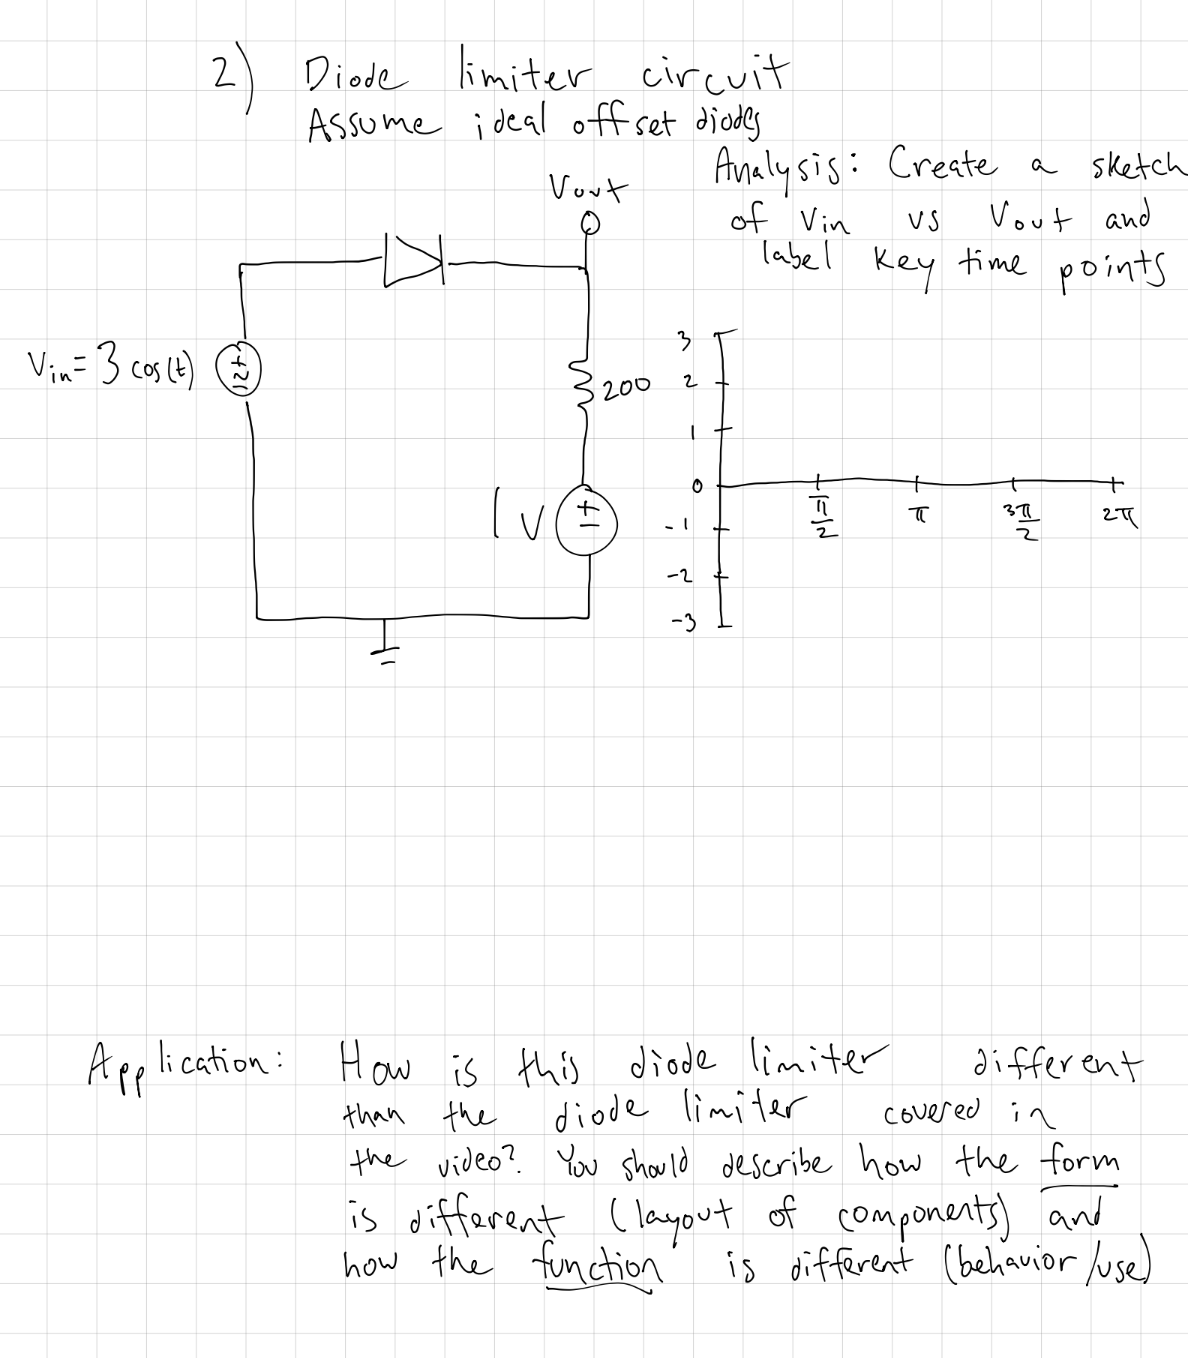 2) Diode limiter circuit
Assume ideal offset diodes
Analysis: Create a sketch
of Vin vs Vout and
label key time points
Vout
Vin = 3 cos(t)
+
~
-
200
1 V
+
-
3
2
1
0
-1
-2
-3
π/2
π
3π/2
2π
Application: How is this diode limiter different
than the diode limiter covered in
the video? You should describe how the form
is different (layout of components) and
how the function is different (behavior/use)